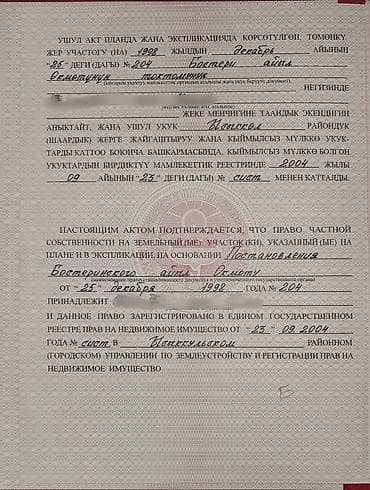 УШУЛ АКТ ПЛАНДА ЖАНА ЭКСПЛИКАЦИЯДА КӨРСӨТҮЛГӨН, ТӨМӨНКҮ
ЖЕР УЧАСТОГУ (НА) 1998 ЖЫЛДЫН декабрь АЙЫНЫН
"25" ДЕГИ (ДАГЫ) №204 Бостери айыл
Өкмөтүнүн токтомунун
НЕГИЗИНДЕ
ЖЕКЕ МЕНЧИГИНЕ ТААНДЫК ЭКЕНДИГИН
АНЫКТАЙТ, ЖАНА УШУЛ УКУК Ысыккөл РАЙОНДУК
(ШААРДЫК) ЖЕРГЕ ЖАЙГАШТЫРУУ ЖАНА КЫЙМЫЛСЫЗ МҮЛККӨ УКУК-
ТАРДЫ КАТТОО БОЮНЧА БАШКАРМАСЫНДА, КЫЙМЫЛСЫЗ МҮЛККӨ БОЛГОН
УКУКТАРДЫН БИРДИКТҮҮ МАМЛЕКЕТТИК РЕЕСТРИНДЕ 2004 ЖЫЛЫ
09 АЙЫНЫН "23" ДЕГИ (ДАГЫ) № сист МЕНЕН КАТТАЛДЫ.
НАСТОЯЩИМ АКТОМ ПОДТВЕРЖДАЕТСЯ, ЧТО ПРАВО ЧАСТНОЙ
СОБСТВЕННОСТИ НА ЗЕМЕЛЬНЫЙ (ЫЕ) УЧАСТОК (КИ), УКАЗАННЫЙ (ЫЕ) НА
ПЛАНЕ И В ЭКСПЛИКАЦИИ, НА ОСНОВАНИИ Постановления
Бостеринского айыл Өкмоту
ОТ "25" декабря 1998 ГОДА № 204
ПРИНАДЛЕЖИТ
И ДАННОЕ ПРАВО ЗАРЕГИСТРИРОВАНО В ЕДИНОМ ГОСУДАРСТВЕННОМ
РЕЕСТРЕ ПРАВ НА НЕДВИЖИМОЕ ИМУЩЕСТВО ОТ "23" 09.2004
ГОДА № сист В Ысыккульском РАЙОННОМ
(ГОРОДСКОМ) УПРАВЛЕНИИ ПО ЗЕМЛЕУСТРОЙСТВУ И РЕГИСТРАЦИИ ПРАВ НА
НЕДВИЖИМОЕ ИМУЩЕСТВО
Б